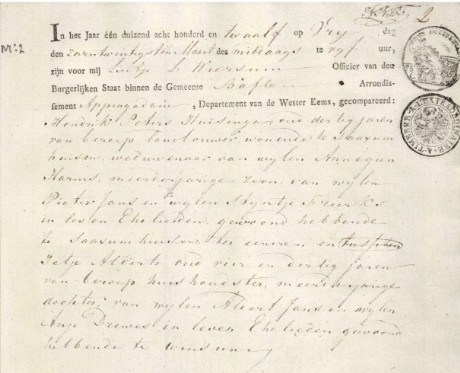 N:2
2
In het Jaar één duizend acht honderd en twaalf op Vry dag
den zeventwintigsten Maart des middags te vyf uur,
zijn voor mij Luitje L Wiersum Officier van den
Burgerlijken Staat binnen de Gemeente Baflo Arrondis-
sement Appingadam, Departement van de Wester Eems, gecompareerd:
Hendrik Peters Huisenga oud dertig jaren
van beroep landbouwer wonende te Saaxum
huisen, weduwenaar van wylen Annegien
Harms, meerderjarige zoon van wylen
Pieter Jans en wylen Styntje Freerks
in leven Ehelieden, gewoond hebbende
te Saaxumhuisen ter eenren en tusschen
Jetje Alderts oud vier en dertig jaren
van beroep huishoudster, meerderjarige
dochter van wylen Aldert Jans en wylen
Anje Drewes in leven Ehelieden gewoond
hebbende te